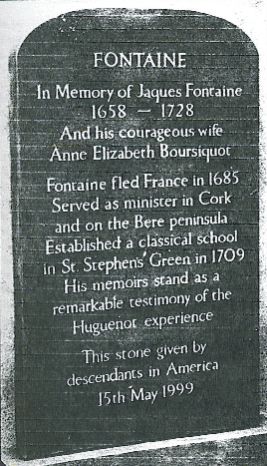 FONTAINE
In Memory of Jaques Fontaine
1658 — 1728
And his courageous wife
Anne Elizabeth Boursiquot
Fontaine fled France in 1685
Served as minister in Cork
and on the Bere peninsula
Established a classical school
in St. Stephens' Green in 1709
His memoirs stand as a
remarkable testimony of the
Huguenot experience
This stone given by
descendants in America
15th May 1999